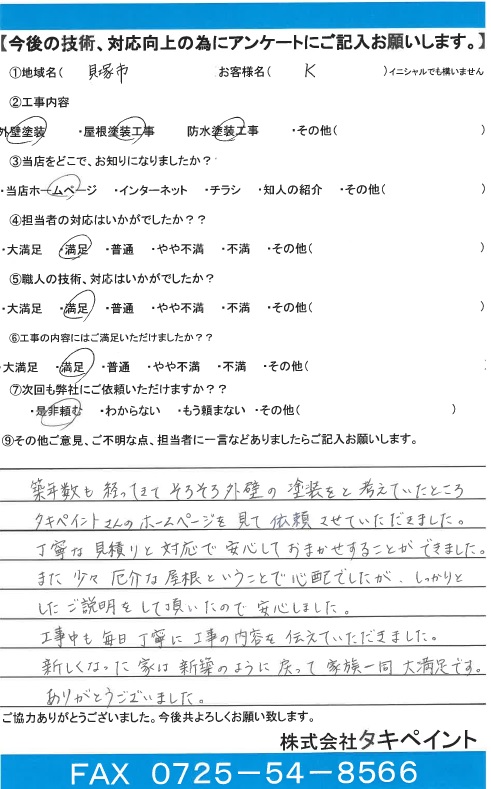 【今後の技術、対応向上の為にアンケートにご記入お願いします。】
①地域名( 貝塚市 お客様名( K )イニシャルでも構いません
②工事内容
外壁塗装 ・屋根塗装工事 防水塗装工事 ・その他( )
③当店をどこで、お知りになりましたか？
・当店ホームページ ・インターネット ・チラシ ・知人の紹介 ・その他( )
④担当者の対応はいかがでしたか？？
・大満足 ・満足 ・普通 ・やや不満 ・不満 ・その他( )
⑤職人の技術、対応はいかがでしたか？
・大満足 ・満足 ・普通 ・やや不満 ・不満 ・その他( )
⑥工事の内容にはご満足いただけましたか？？
・大満足 ・満足 ・普通 ・やや不満 ・不満 ・その他(
⑦次回も弊社にご依頼いただけますか？？
・是非頼む ・わからない ・もう頼まない ・その他( )
⑨その他ご意見、ご不明な点、担当者に一言などありましたらご記入お願いします。
築年数も経ってきて そろそろ外壁の塗装をと考えていたところ
タキペイントさんのホームページを見て依頼させていただきました。
丁寧な見積りと対応で安心しておまかせすることができました。
また少々厄介な屋根ということで心配でしたが、しっかりと
したご説明をして頂いたので安心しました。
工事中も毎日丁寧に工事の内容を伝えていただきました。
新しくなった家は新築のように戻って家族一同大満足です。
ありがとうございました。
ご協力ありがとうございました。今後共よろしくお願い致します。
株式会社タキペイント
FAX 0725－54－8566